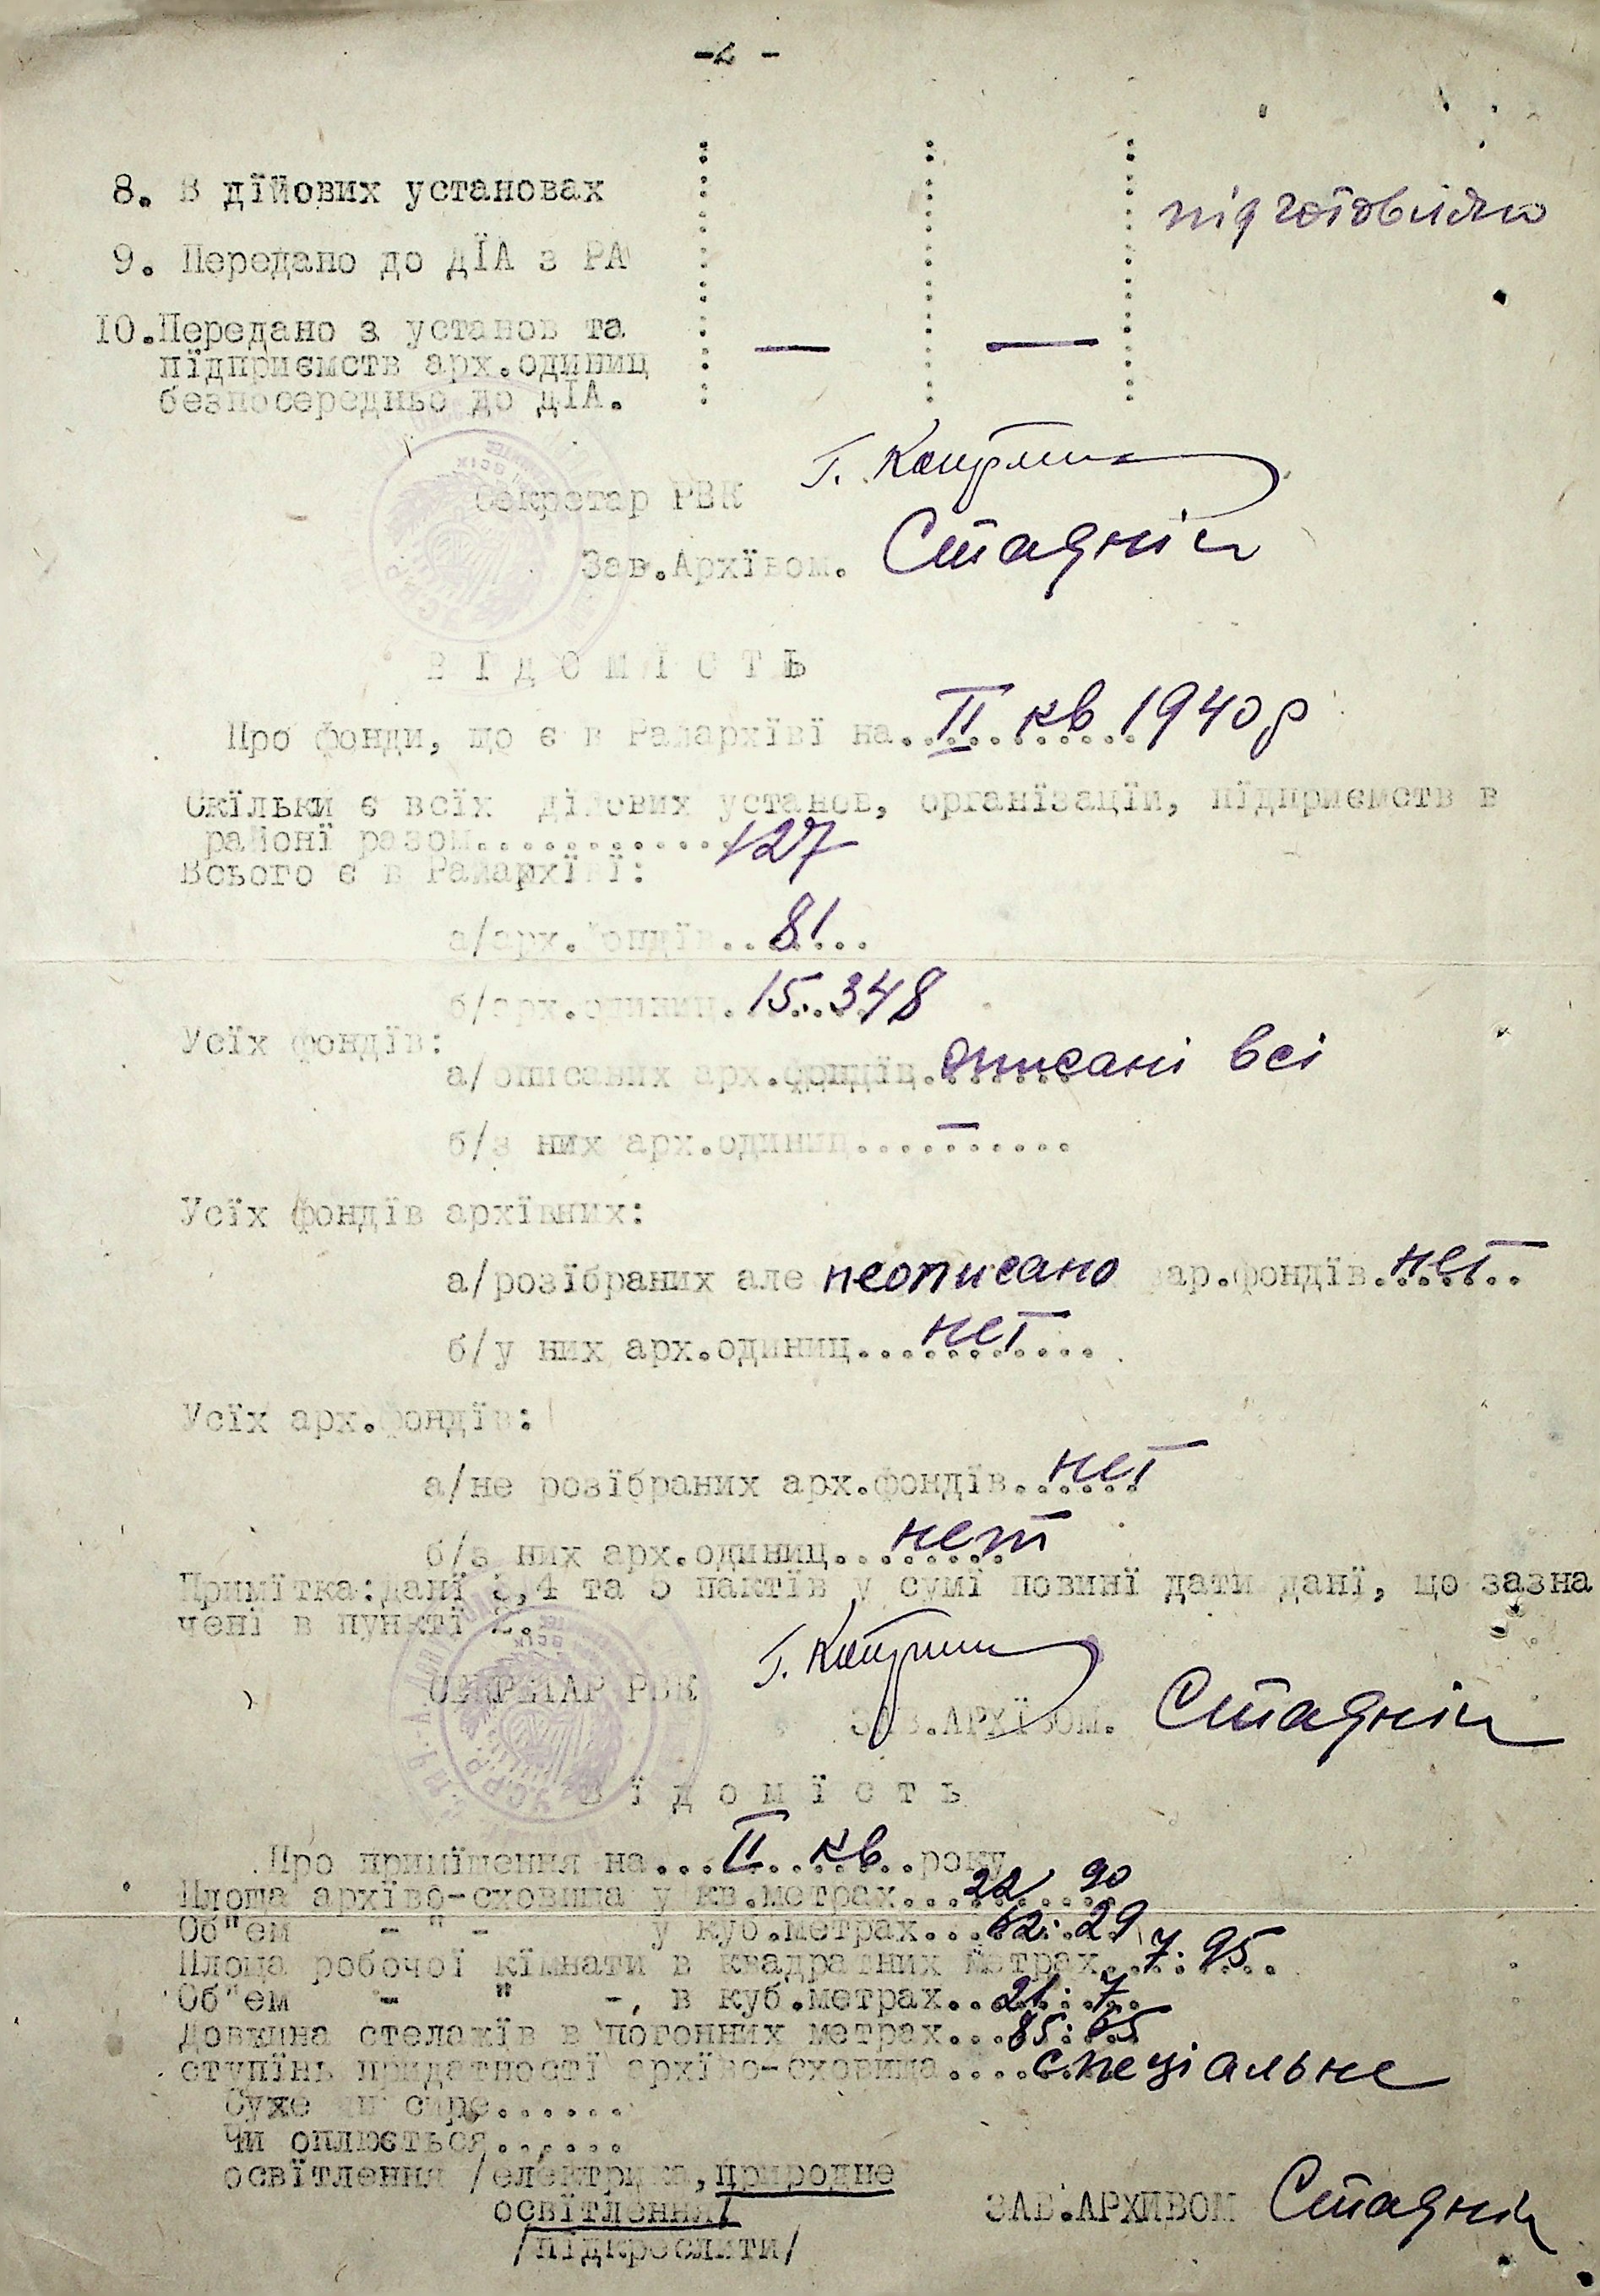 -2 -
8. В дїйових установах
підготовлено
9. Передано до дІА з РА
10.Передано з установ та — —
пїдприємств арх.одиниц
безпосередньо до дІА.
Секретар РВК
Зав.Архївом. Стадній
В І Д О М І С Т Ь
Про фонди, що є в Ралархїві на....II кв 1940 р
Скїльки є всїх дїйових установ, органїзацїй, пїдприємств в
районї разом............127
Всього є в Ралархїві:
а/арх.фондїв..81...
б/арх.одиниц.15.348
Усїх фондїв:
а/описаних арх.фондїв.описані всі
б/з них арх.одиниц....—......
Усїх фондїв архївних:
а/розїбраних але неописано ар.фондїв.нет..
б/у них арх.одиниц...нет....
Усїх арх.фондїв:
а/не розїбраних арх.фондїв..нет
б/з них арх.одиниц...нет
Примїтка:данї 3,4 та 5 пактїв у сумі повинї дати данї, що зазна
чені в пункті 2.
СЕКРЕТАР РВК
ЗАВ.АРХЇВОМ. Стадній
В ї д о м ї с т ь
Про примїщення на...II..кв..року
Площа архїво-сховища у кв.метрах...22 90
Об"ем - " - у куб.метрах...62:29
Площа робочої кїмнати в квадратних метрах.7:95..
Об"ем - " -, в куб.метрах..21:7.
Довжина стелажїв в погонних метрах...85:65
ступїнь придатностї архїво-сховища....спеціальне
Сухе чи сире......
Чи оплюється......
освїтлення /електрика,природне
освїтлення/
/підкреслити/
ЗАВ.АРХИВОМ Стадній